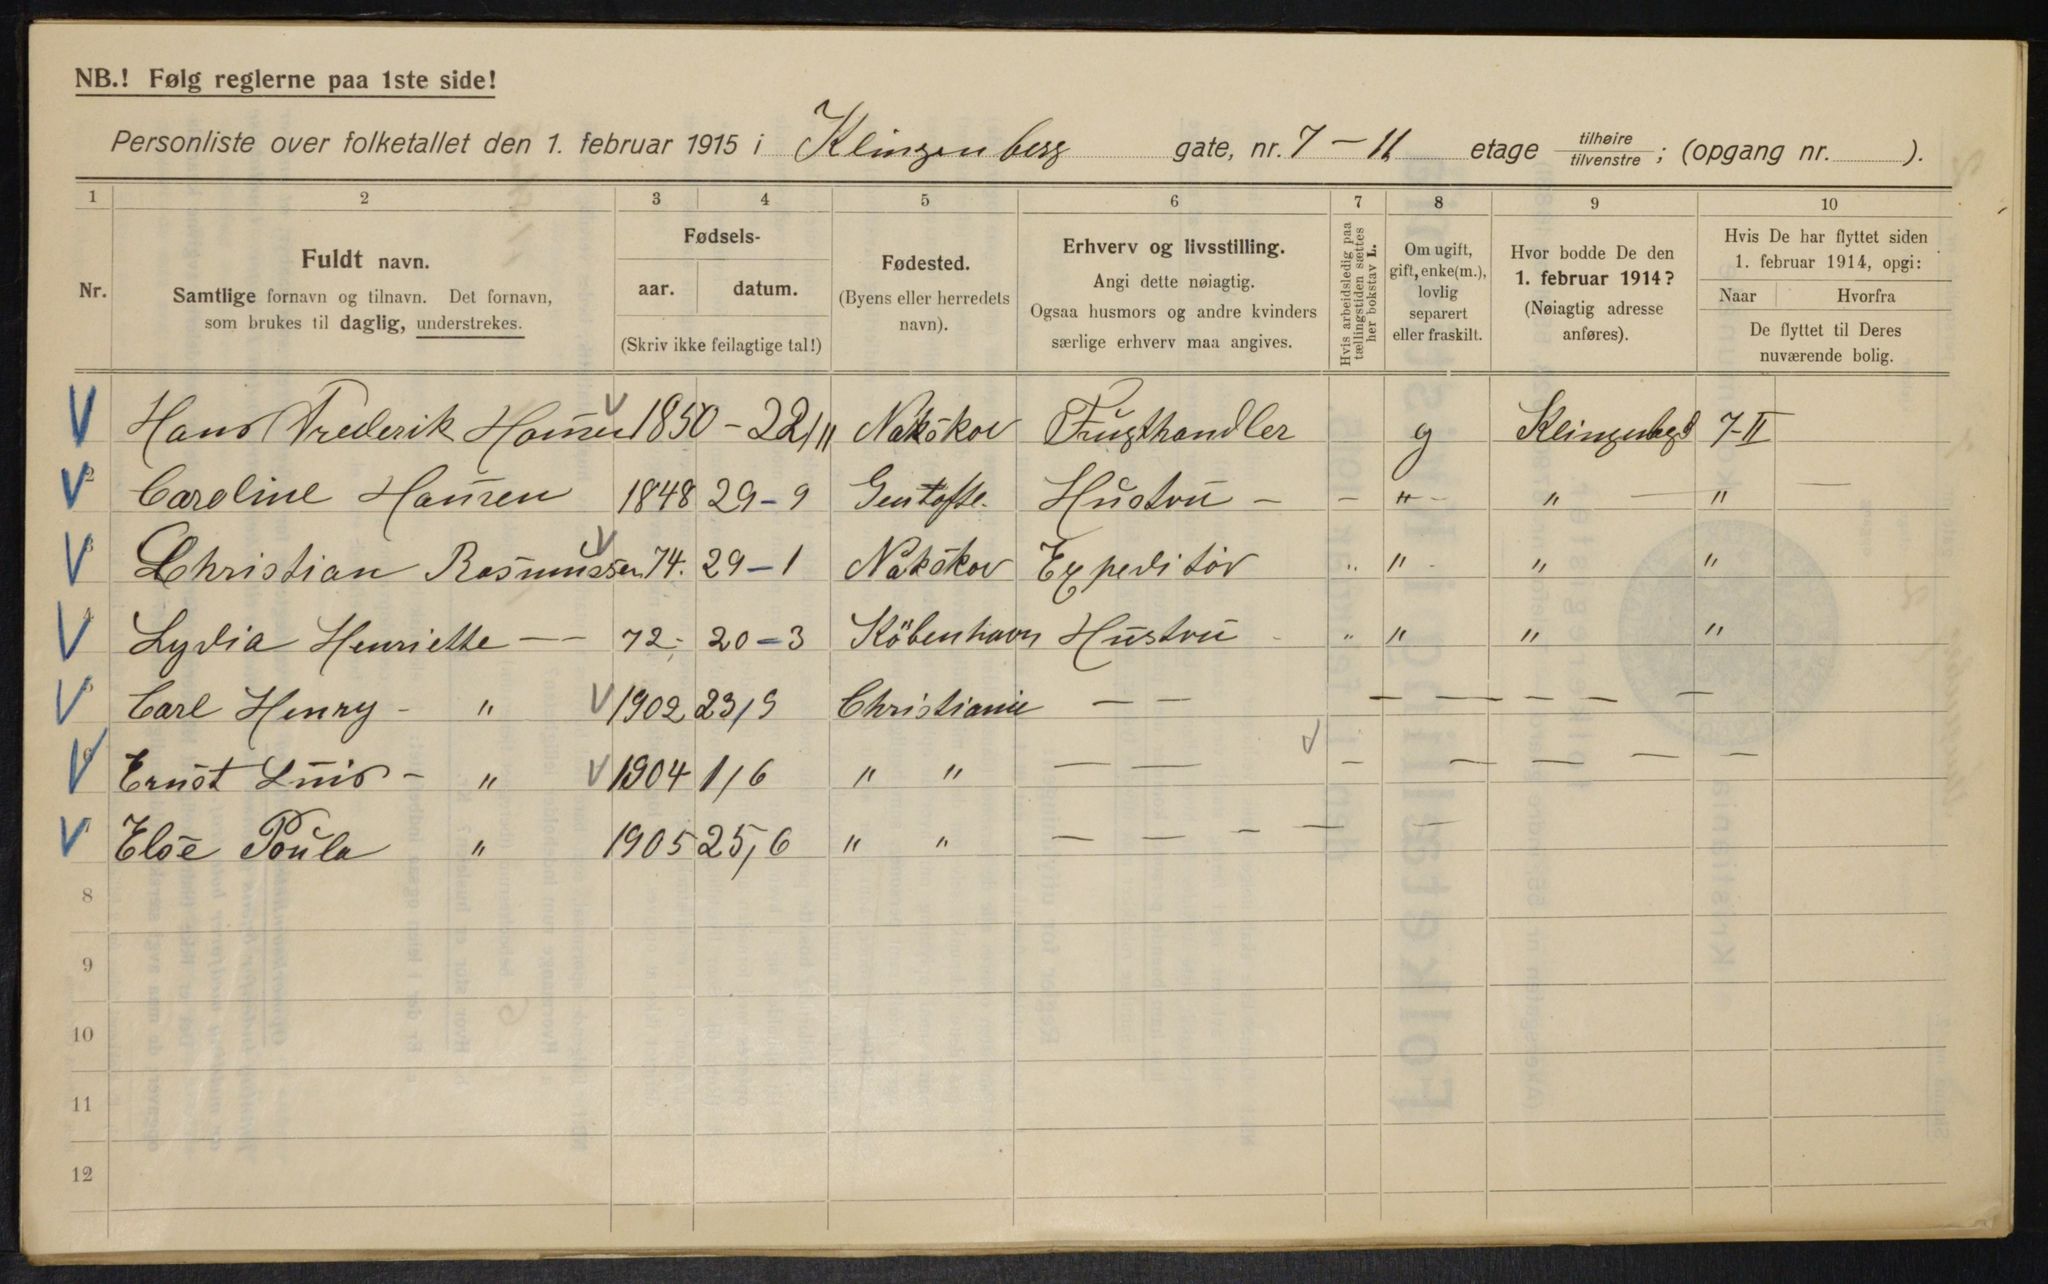 NB.! Følg reglerne paa 1ste side!
Personliste over folketallet den 1. februar 1915 i Klingenberg gate, nr. 7 – II etage tilhøire / tilvenstre ; (opgang nr. ).
1 2 3 4 5 6 7 8 9 10
Nr.
Fuldt navn.
Samtlige fornavn og tilnavn. Det fornavn,
som brukes til daglig, understrekes.
Fødsels-
aar. datum.
(Skriv ikke feilagtige tal!)
Fødested.
(Byens eller herredets
navn).
Erhverv og livsstilling.
Angi dette nøiagtig.
Ogsaa husmors og andre kvinders
særlige erhverv maa angives.
Hvis arbeidsledig paa
tællingstiden sættes
her bokstav L.
Om ugift,
gift, enke(m.),
lovlig
separert
eller fraskilt.
Hvor bodde De den
1. februar 1914?
(Nøiagtig adresse
anføres).
Hvis De har flyttet siden
1. februar 1914, opgi:
Naar Hvorfra
De flyttet til Deres
nuværende bolig.
Hans Frederik Hansen 1850 – 22/11 Nakskov Frugthandler g Klingenbegd 7-II
2 Caroline Hansen 1848 29 – 9 Gentofte. Hustru – – " – " – " –
3 Christian Rasmussen 74. 29 – 1 Nakskov Expeditør " " " "
4 Lydia Henriette — — 72 – 20 – 3 København Hustru - " " " "
5 Carl Henry - " 1902 23/9 Christiania — — — — — — —
6 Ernst Luis - " 1904 1/6 " " — — — — — — —
7 Else Poula " 1905 25/6 " " — — — — —
8
9
10
11
12